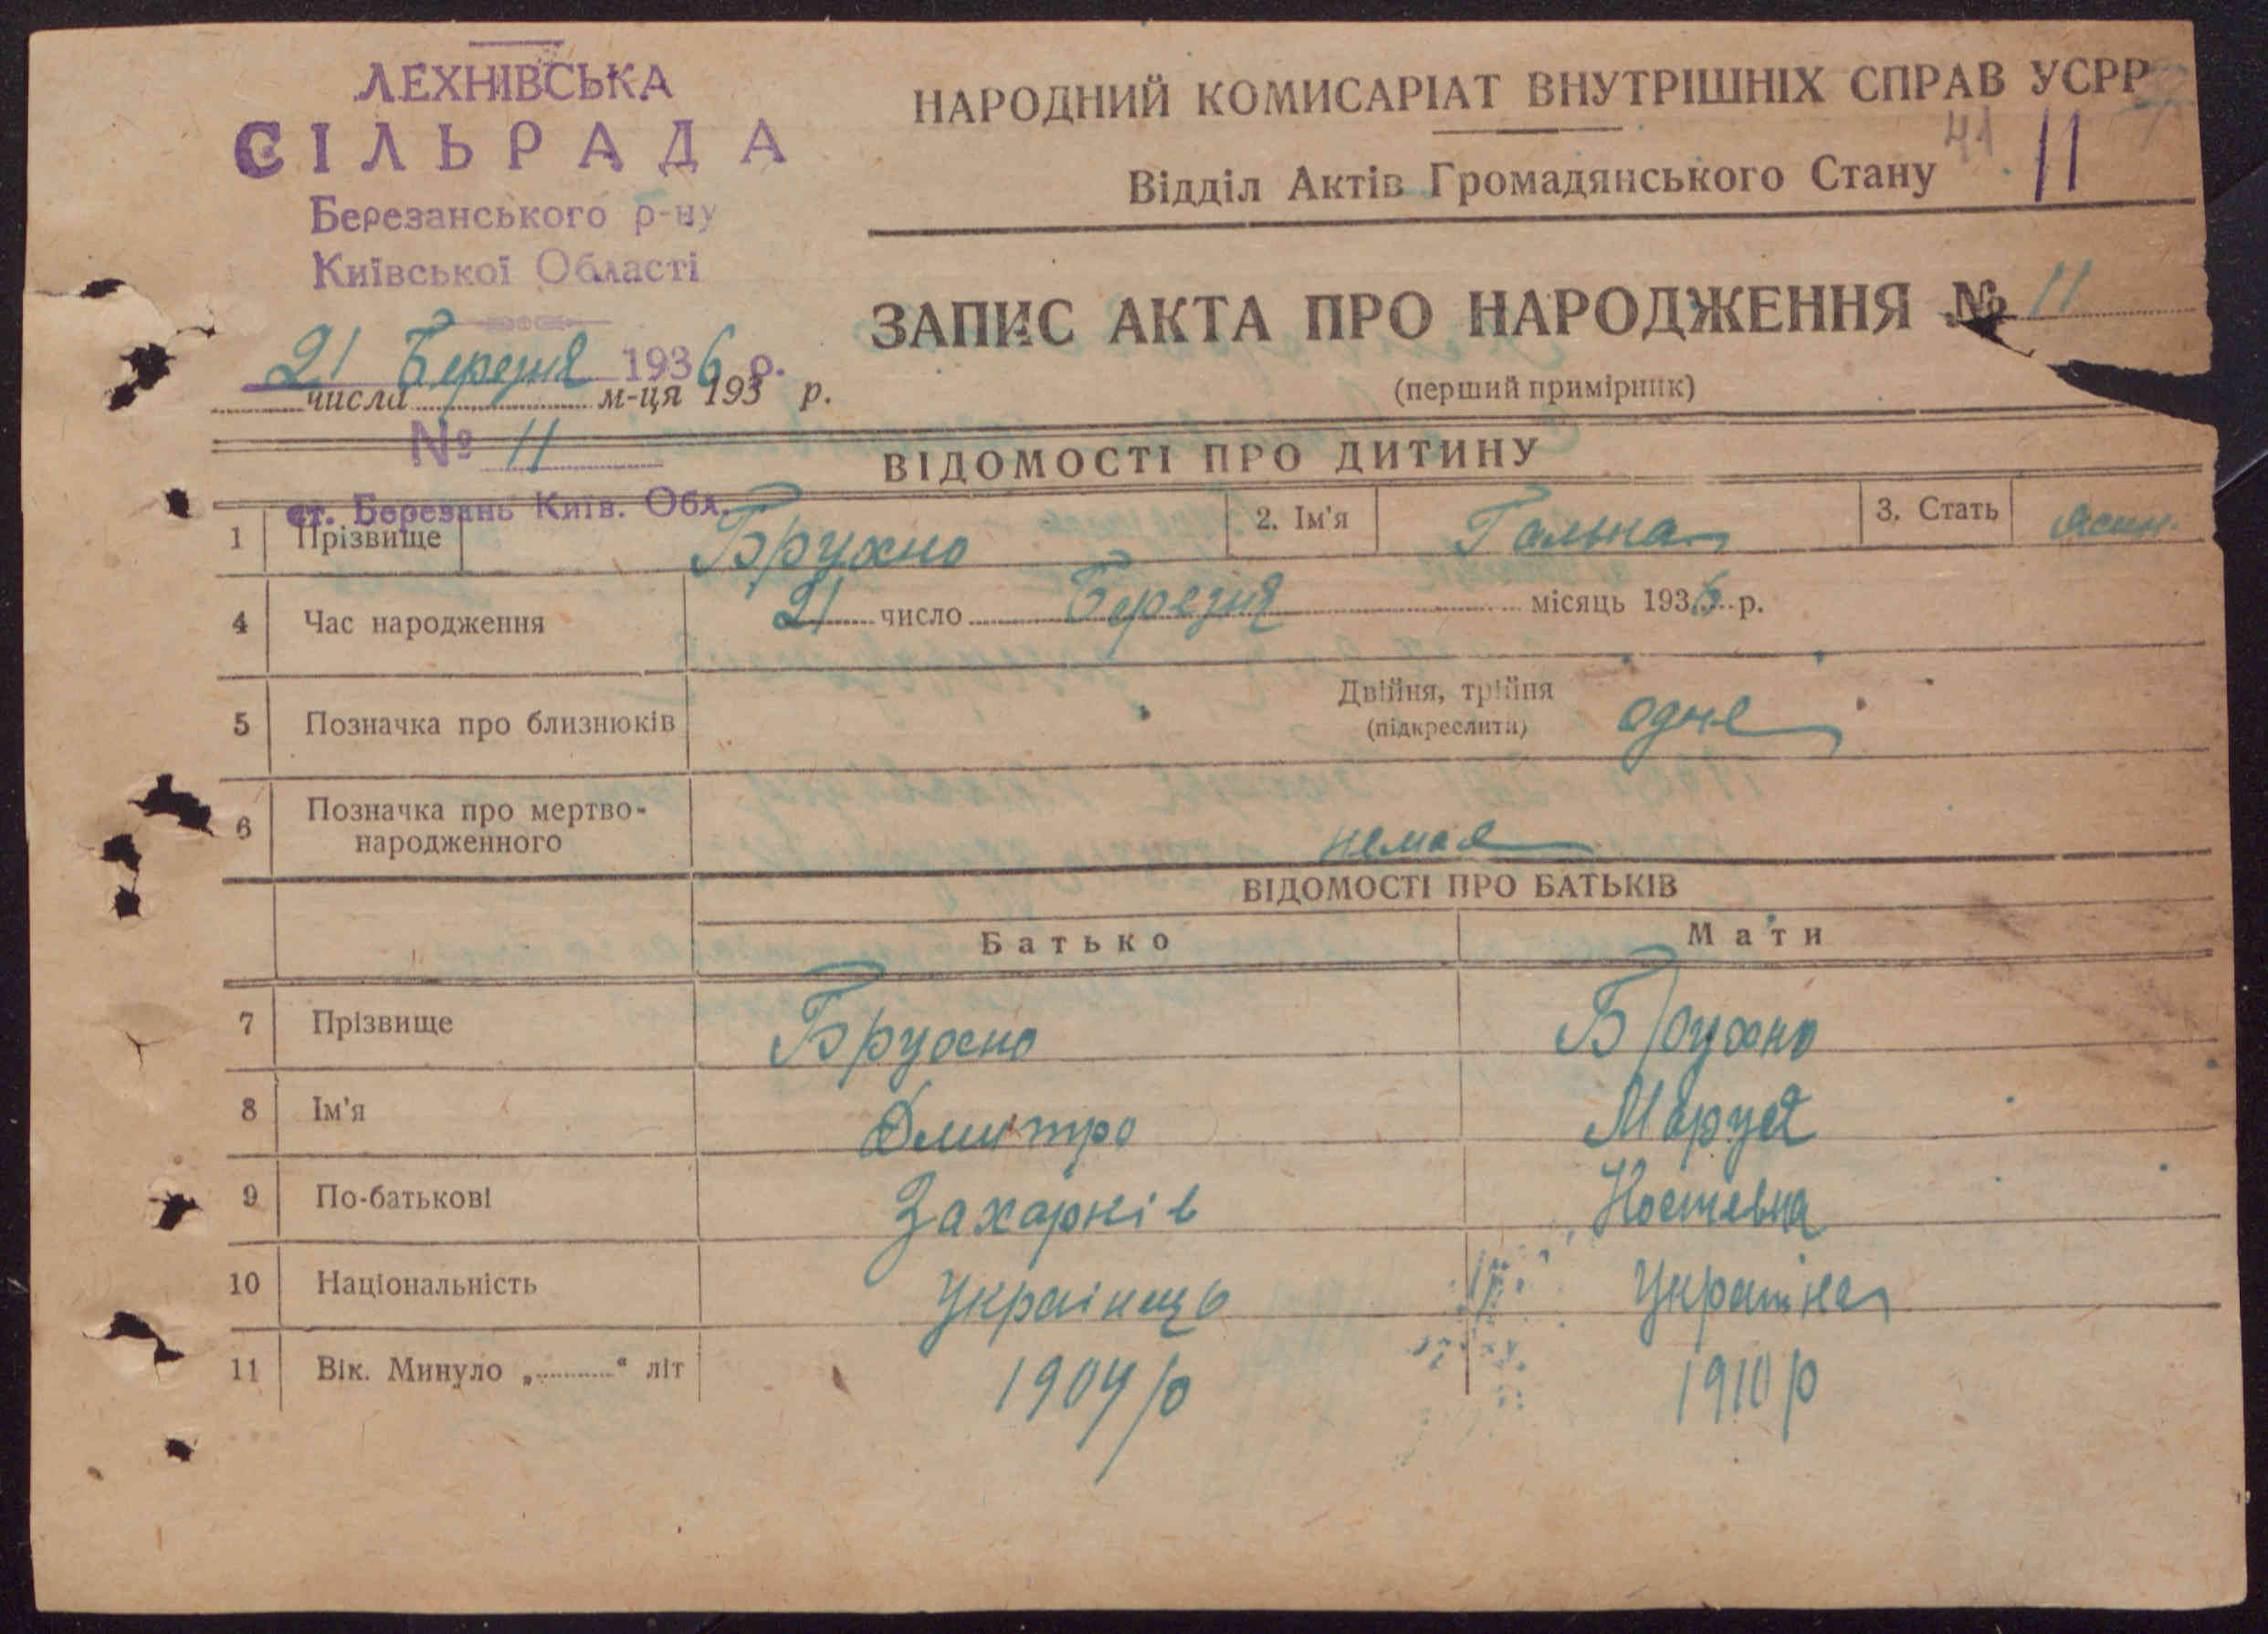 ЛЕХНІВСЬКА
СІЛЬРАДА
Березанського р-ну
Київської Області
21 Березня 1936 р.
числа м-ця 193 р.
№ 11
ст. Березань Київ. Обл.
НАРОДНИЙ КОМИСАРІАТ ВНУТРІШНІХ СПРАВ УСРР
41 11
Відділ Актів Громадянського Стану
ЗАПИС АКТА ПРО НАРОДЖЕННЯ № 11
(перший примірник)
ВІДОМОСТІ ПРО ДИТИНУ
1 Прізвище Брухно 2. Ім'я Гальна 3. Стать
4 Час народження 21 число Березня місяць 1936 р.
5 Позначка про близнюків Двійня, трійня (підкреслити) одне
6 Позначка про мертво-
народженного немає
ВІДОМОСТІ ПРО БАТЬКІВ
Батько Мати
7 Прізвище Брухно Брухно
8 Ім'я Дмитро Маруся
9 По-батькові Захарків Костевна
10 Національність Українець Україна
11 Вік. Минуло „ " літ 1904 р 1910 р